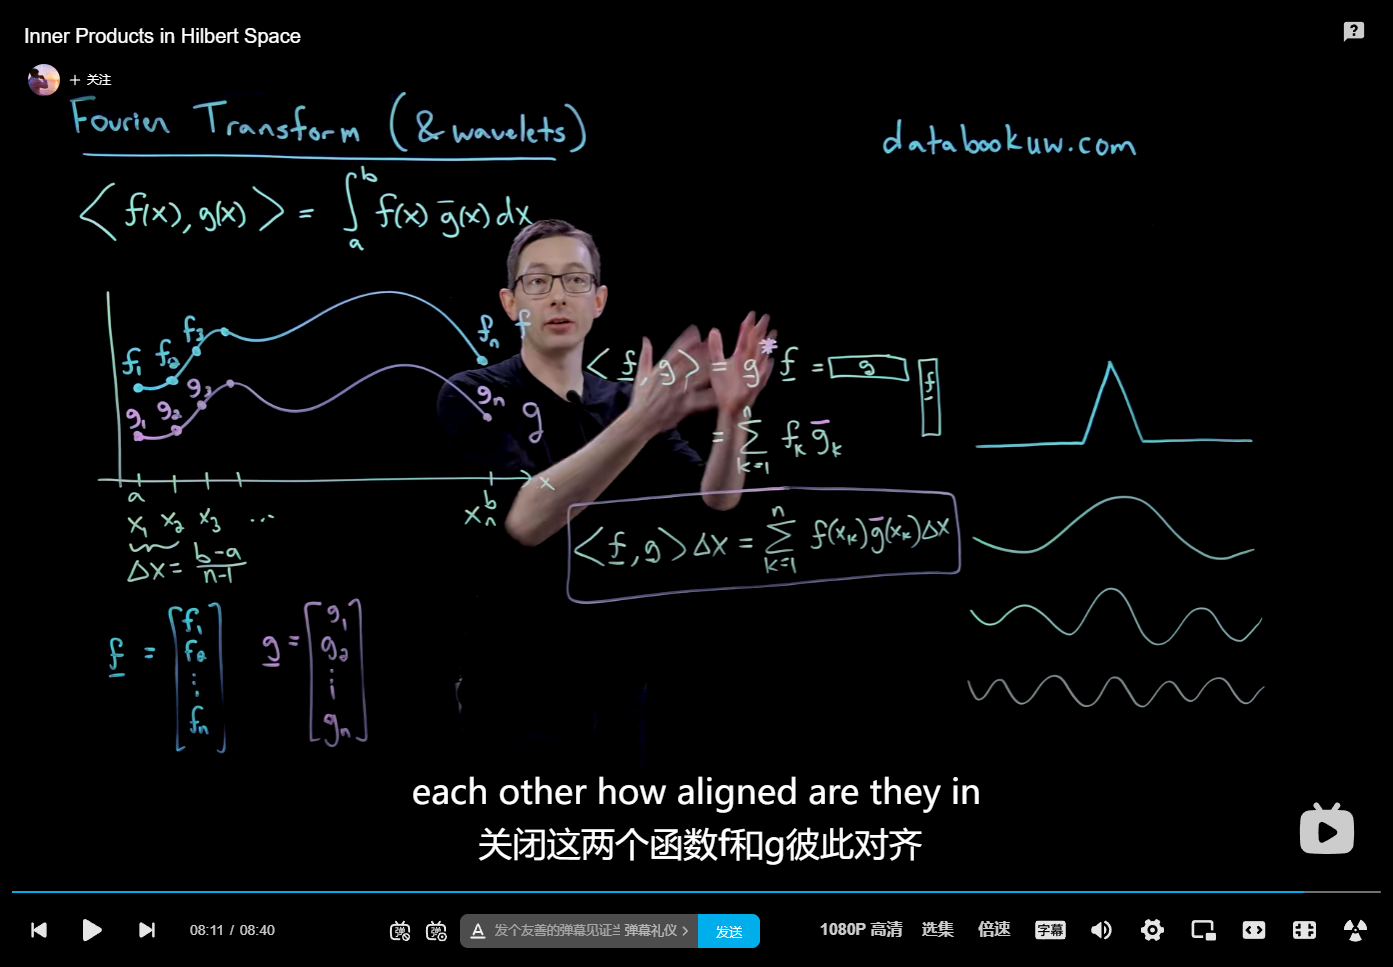 Inner Products in Hilbert Space
+ 关注
Fourier Transform (& wavelets)
databookuw.com
<f(x), g(x)> = ∫_a^b f(x) g̅(x) dx
f₁ f₂ f₃ fₙ f
g₁ g₂ g₃ gₙ g
a b x
x₁ x₂ x₃ ... xₙ
Δx = (b-a)/(n-1)
<f, g> = g* f = g f
= Σ_{k=1}^n fₖ g̅ₖ
<f, g> Δx = Σ_{k=1}^n f(xₖ) g̅(xₖ) Δx
f = [f₁ f₂ ⋮ fₙ] g = [g₁ g₂ ⋮ gₙ]
each other how aligned are they in
关闭这两个函数f和g彼此对齐
08:11 / 08:40
发个友善的弹幕见证 弹幕礼仪 >
发送
1080P 高清
选集
倍速
字幕